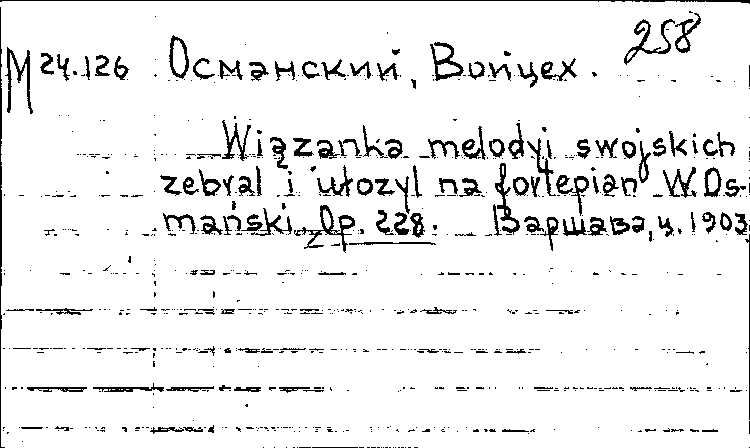 258
M 24.126 Османский, Войцех.
Wiązanka melodyi swojskich
zebral i ułozyl na fortepian W. Os-
mański. Op. 228. Варшава, ц. 1903